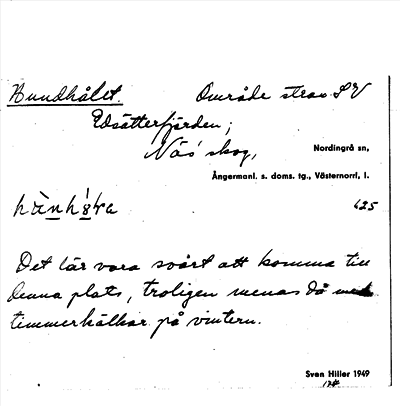 Hundhålet. Område strax SV
Edsätterfjärden;
Näs' skog,
Nordingrå sn,
Ångermanl. s. doms. tg., Västernorrl. l.
625
Det lär vara svårt att komma till
denna plats, troligen menas då med
timmerkälkar på vintern.
Sven Hiller 1949